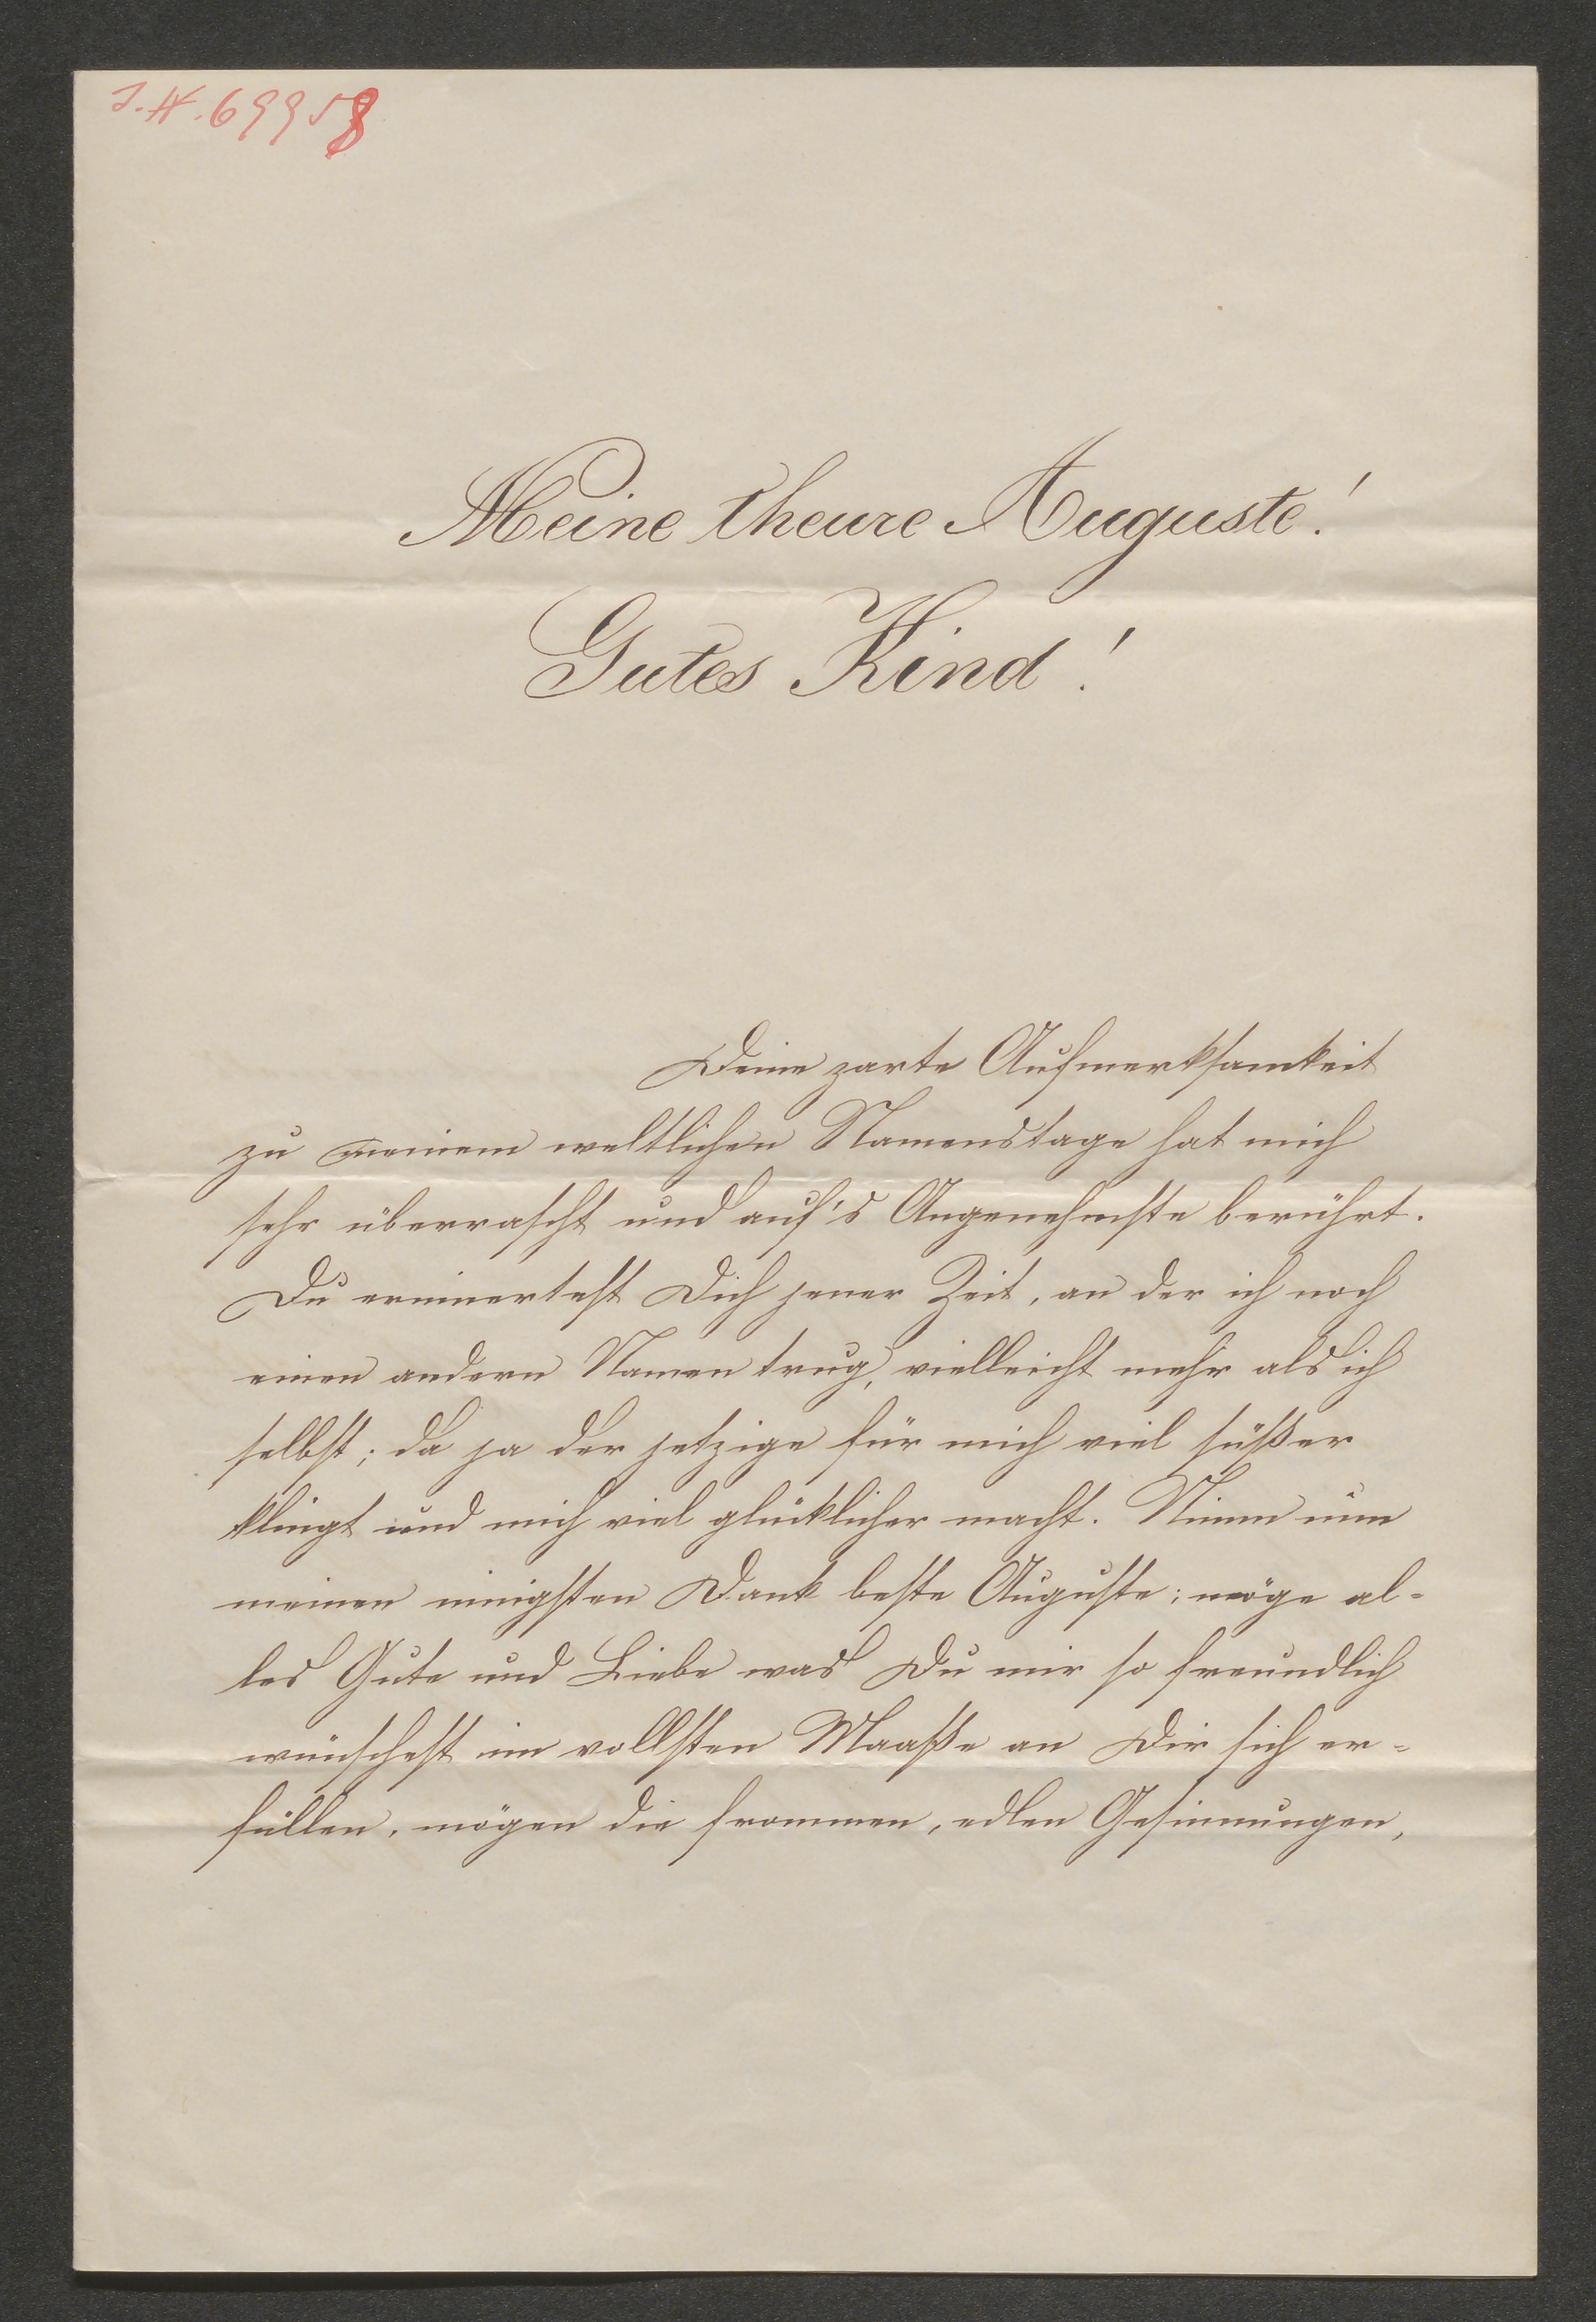 J.N. 69958
Meine theure Auguste!
Gutes Kind!
Deine zarte Aufmerksamkeit
zu meinem weltlichen Namenstage hat mich
sehr überrascht und auf's Angenehmste berührt.
Du erinnertest Dich jener Zeit, an der ich noch
einen andern Namen trug, vielleicht mehr als ich
selbst; da ja der jetzige für mich viel süßer
klingt und mich viel glücklicher macht. Nimm nun
meinen innigsten Dank beste Auguste; möge al-
les Gute und Liebe was Du mir so freundlich
wünschest im vollsten Maaße an Dir sich er-
füllen, mögen die frommen, edlen Gesinnungen,